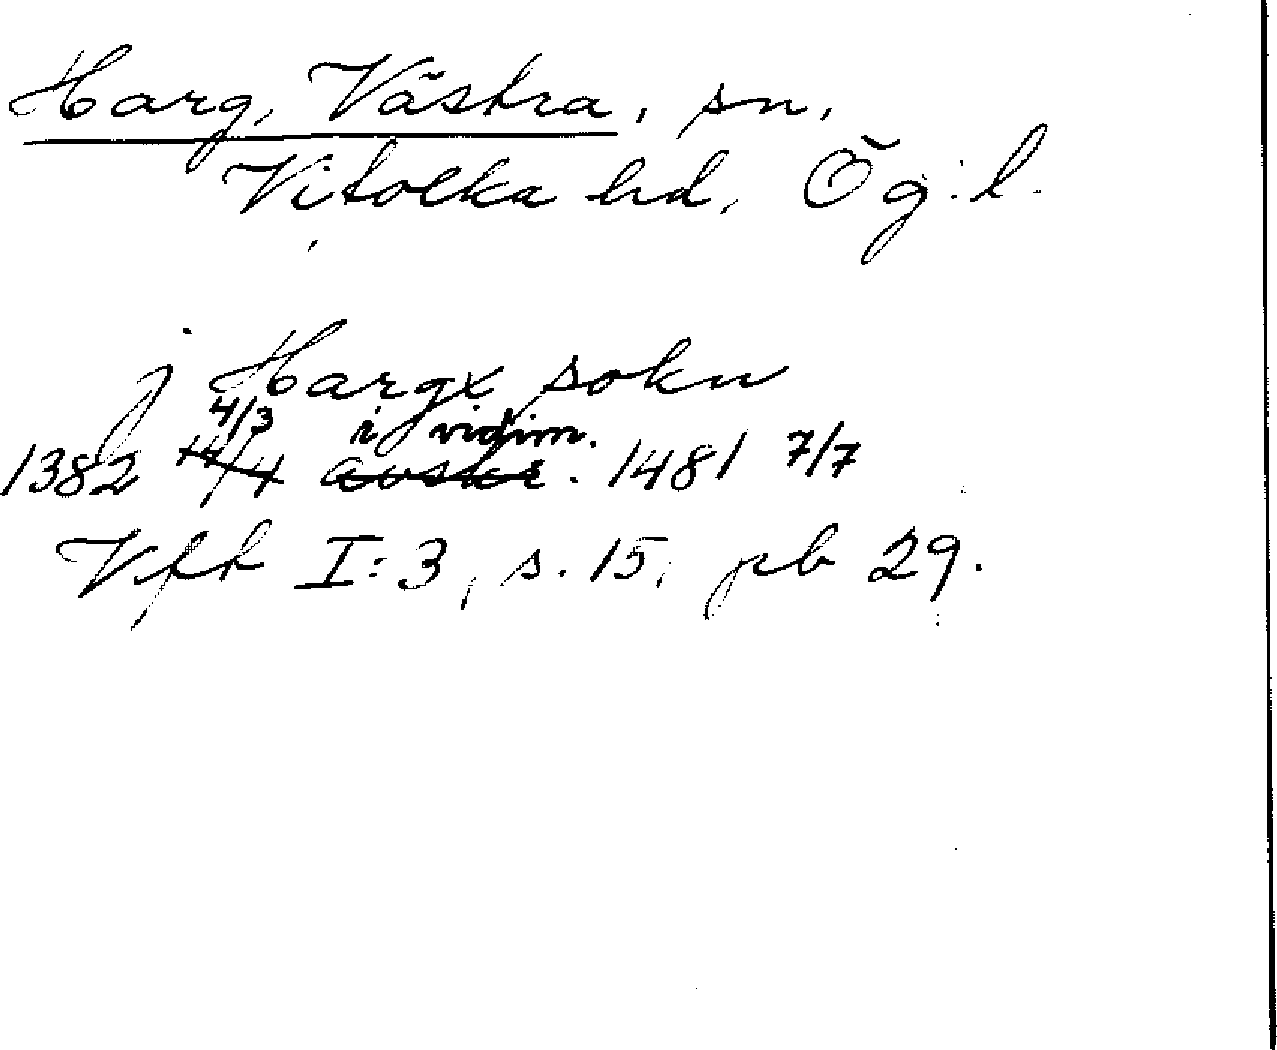 Harg, Västra, sn,
Vifolka hd, Ög. l.
j Hargx sokn
4/3 i vidim.
1382 14/4 avskr. 1481 7/7
Vfk I:3, s. 15, pb 29.